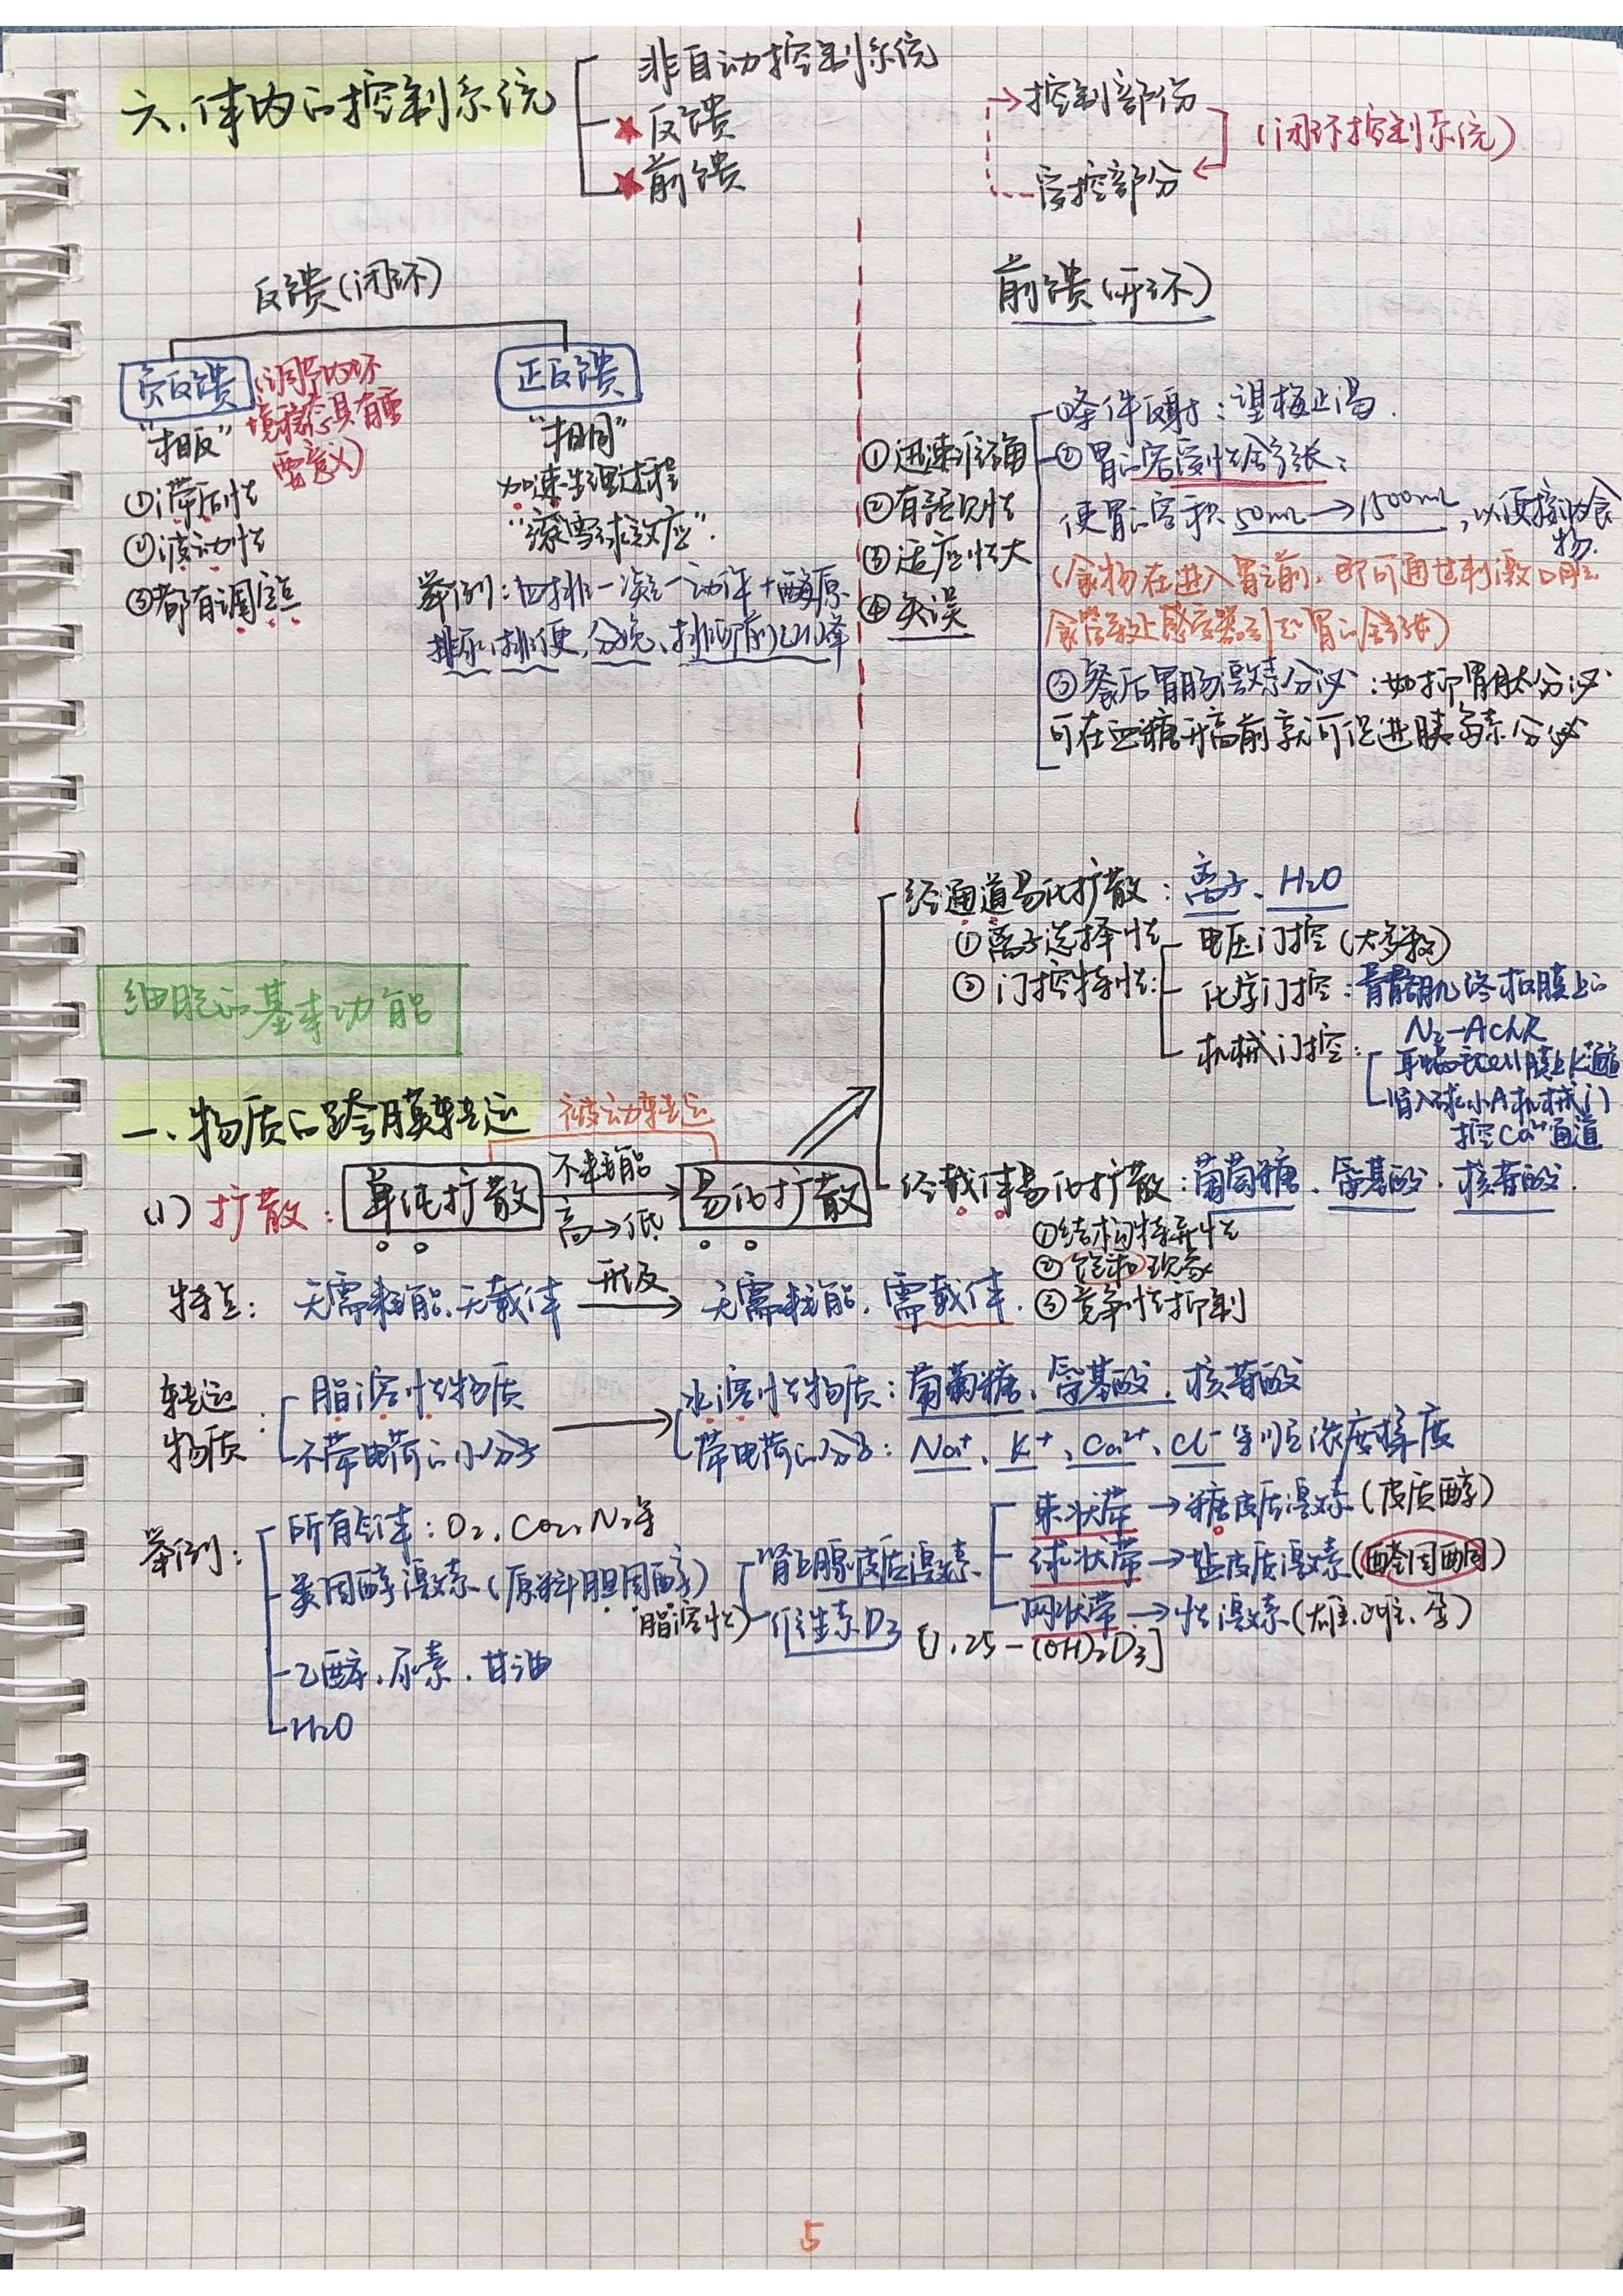 六、体内的控制系统
非自动控制系统
★反馈
★前馈
控制部份
受控部分
(闭环控制系统)
反馈(闭环)
负反馈
(调节内环
境稳态具有重
要意义)
"相反"
①滞后性
②波动性
③都有调定点
正反馈
"相同"
加速生理过程
"滚雪球效应"
举例:血排一凝一动作+酶原
排尿、排便、分娩、排卵前LH峰
前馈(开环)
①迅速准确
②有预见性
③适应性大
④失误
①条件反射:望梅止渴.
②胃的容受性舒张:
使胃的容积50mL→1500mL,以便接收食
物.
(食物在进入胃之前,即可通过刺激口腔
食管等处感受器引起胃的舒张)
③餐后胃肠激素分泌:如抑胃肽分泌
可在血糖升高前就可促进胰岛素分泌
细胞的基本功能
一、物质的跨膜转运
被动转运
(1)扩散:
单纯扩散
不耗能
高→低
易化扩散
经通道易化扩散:离子、H₂O
①离子选择性
②门控特性:
电压门控(大多数)
化学门控:骨骼肌终板膜上的
N₂-AChR
机械门控:
耳蜗毛cell膜上K⁺通道
肾入球小A机械门
控Ca²⁺通道
经载体易化扩散:葡萄糖、氨基酸、核苷酸.
①结构特异性
②饱和现象
③竞争性抑制
特点:
无需耗能、无载体
形成
无需耗能、需载体.
转运
物质:
脂溶性物质
不带电荷的小分子
水溶性物质:葡萄糖、氨基酸、核苷酸
带电荷的分子:Na⁺、K⁺、Ca²⁺、Cl⁻等顺浓度梯度
举例:
所有气体:O₂、CO₂、N₂等
类固醇激素(原料胆固醇)
脂溶性)
肾上腺皮质激素
束状带→糖皮质激素(皮质醇)
球状带→盐皮质激素(醛固酮)
网状带→性激素(雄、雌、孕)
维生素D₃[1,25-(OH)₂D₃]
乙醇、尿素、甘油
H₂O
5